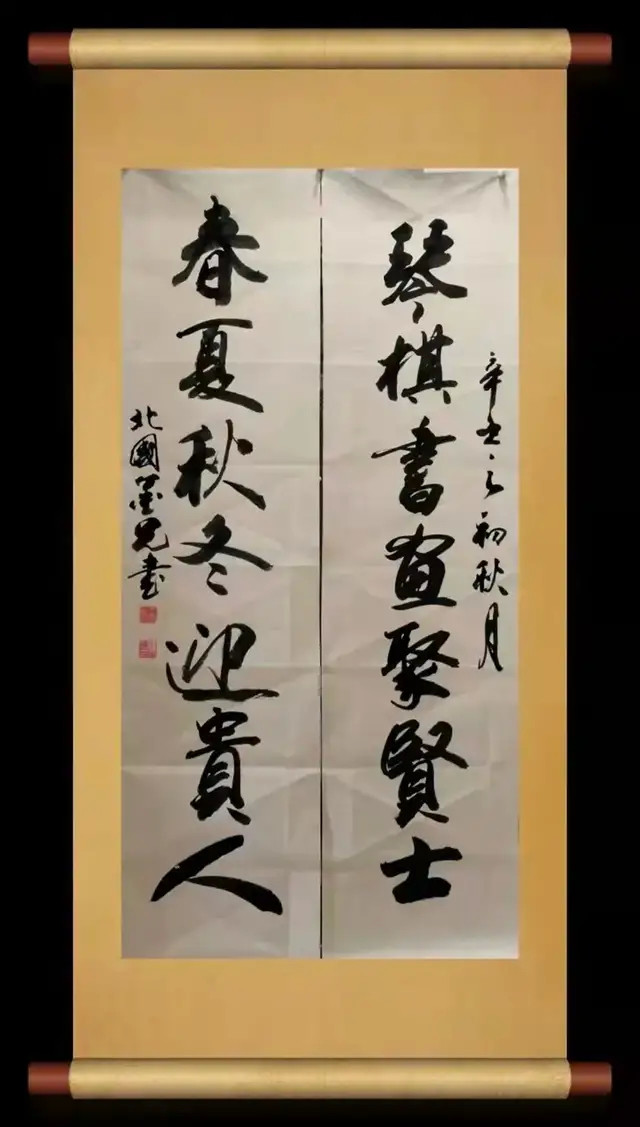 辛丑之初秋月
琴棋書畫聚賢士
春夏秋冬迎貴人
北國墨兄書